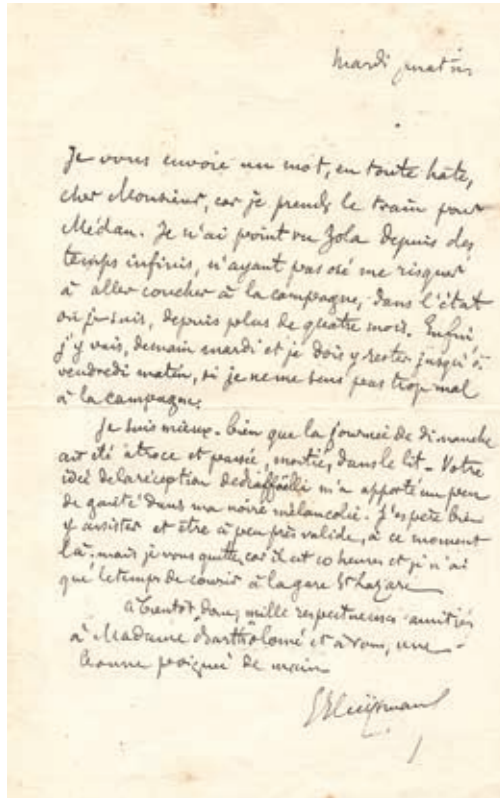 Mardi matin
Je vous envoie un mot, en toute hâte,
cher Monsieur, car je prends le train pour
Médan. Je n'ai point vu Zola depuis des
temps infinis, n'ayant pas osé me risquer
à aller coucher à la campagne, dans l'état
où je suis, depuis plus de quatre mois. Enfin
j'y vais, demain mardi et je dois y rester jusqu'à
vendredi matin, si je ne me sens pas trop mal
à la campagne.
Je suis mieux - bien que la journée de dimanche
ait été atroce et passée, moitié, dans le lit - Votre
idée de la réception de Raffaëlli m'a apporté un peu
de gaieté dans ma noire mélancolie. J'espère bien
y assister et être à peu près valide, à ce moment
là - mais je vous quitte, car il est 10 heures et je n'ai
que le temps de courir à la gare St Lazare
à bientôt donc, mille respectueuses amitiés
à Madame Bartholomé et à vous, une
bonne poignée de main
GHuysmans